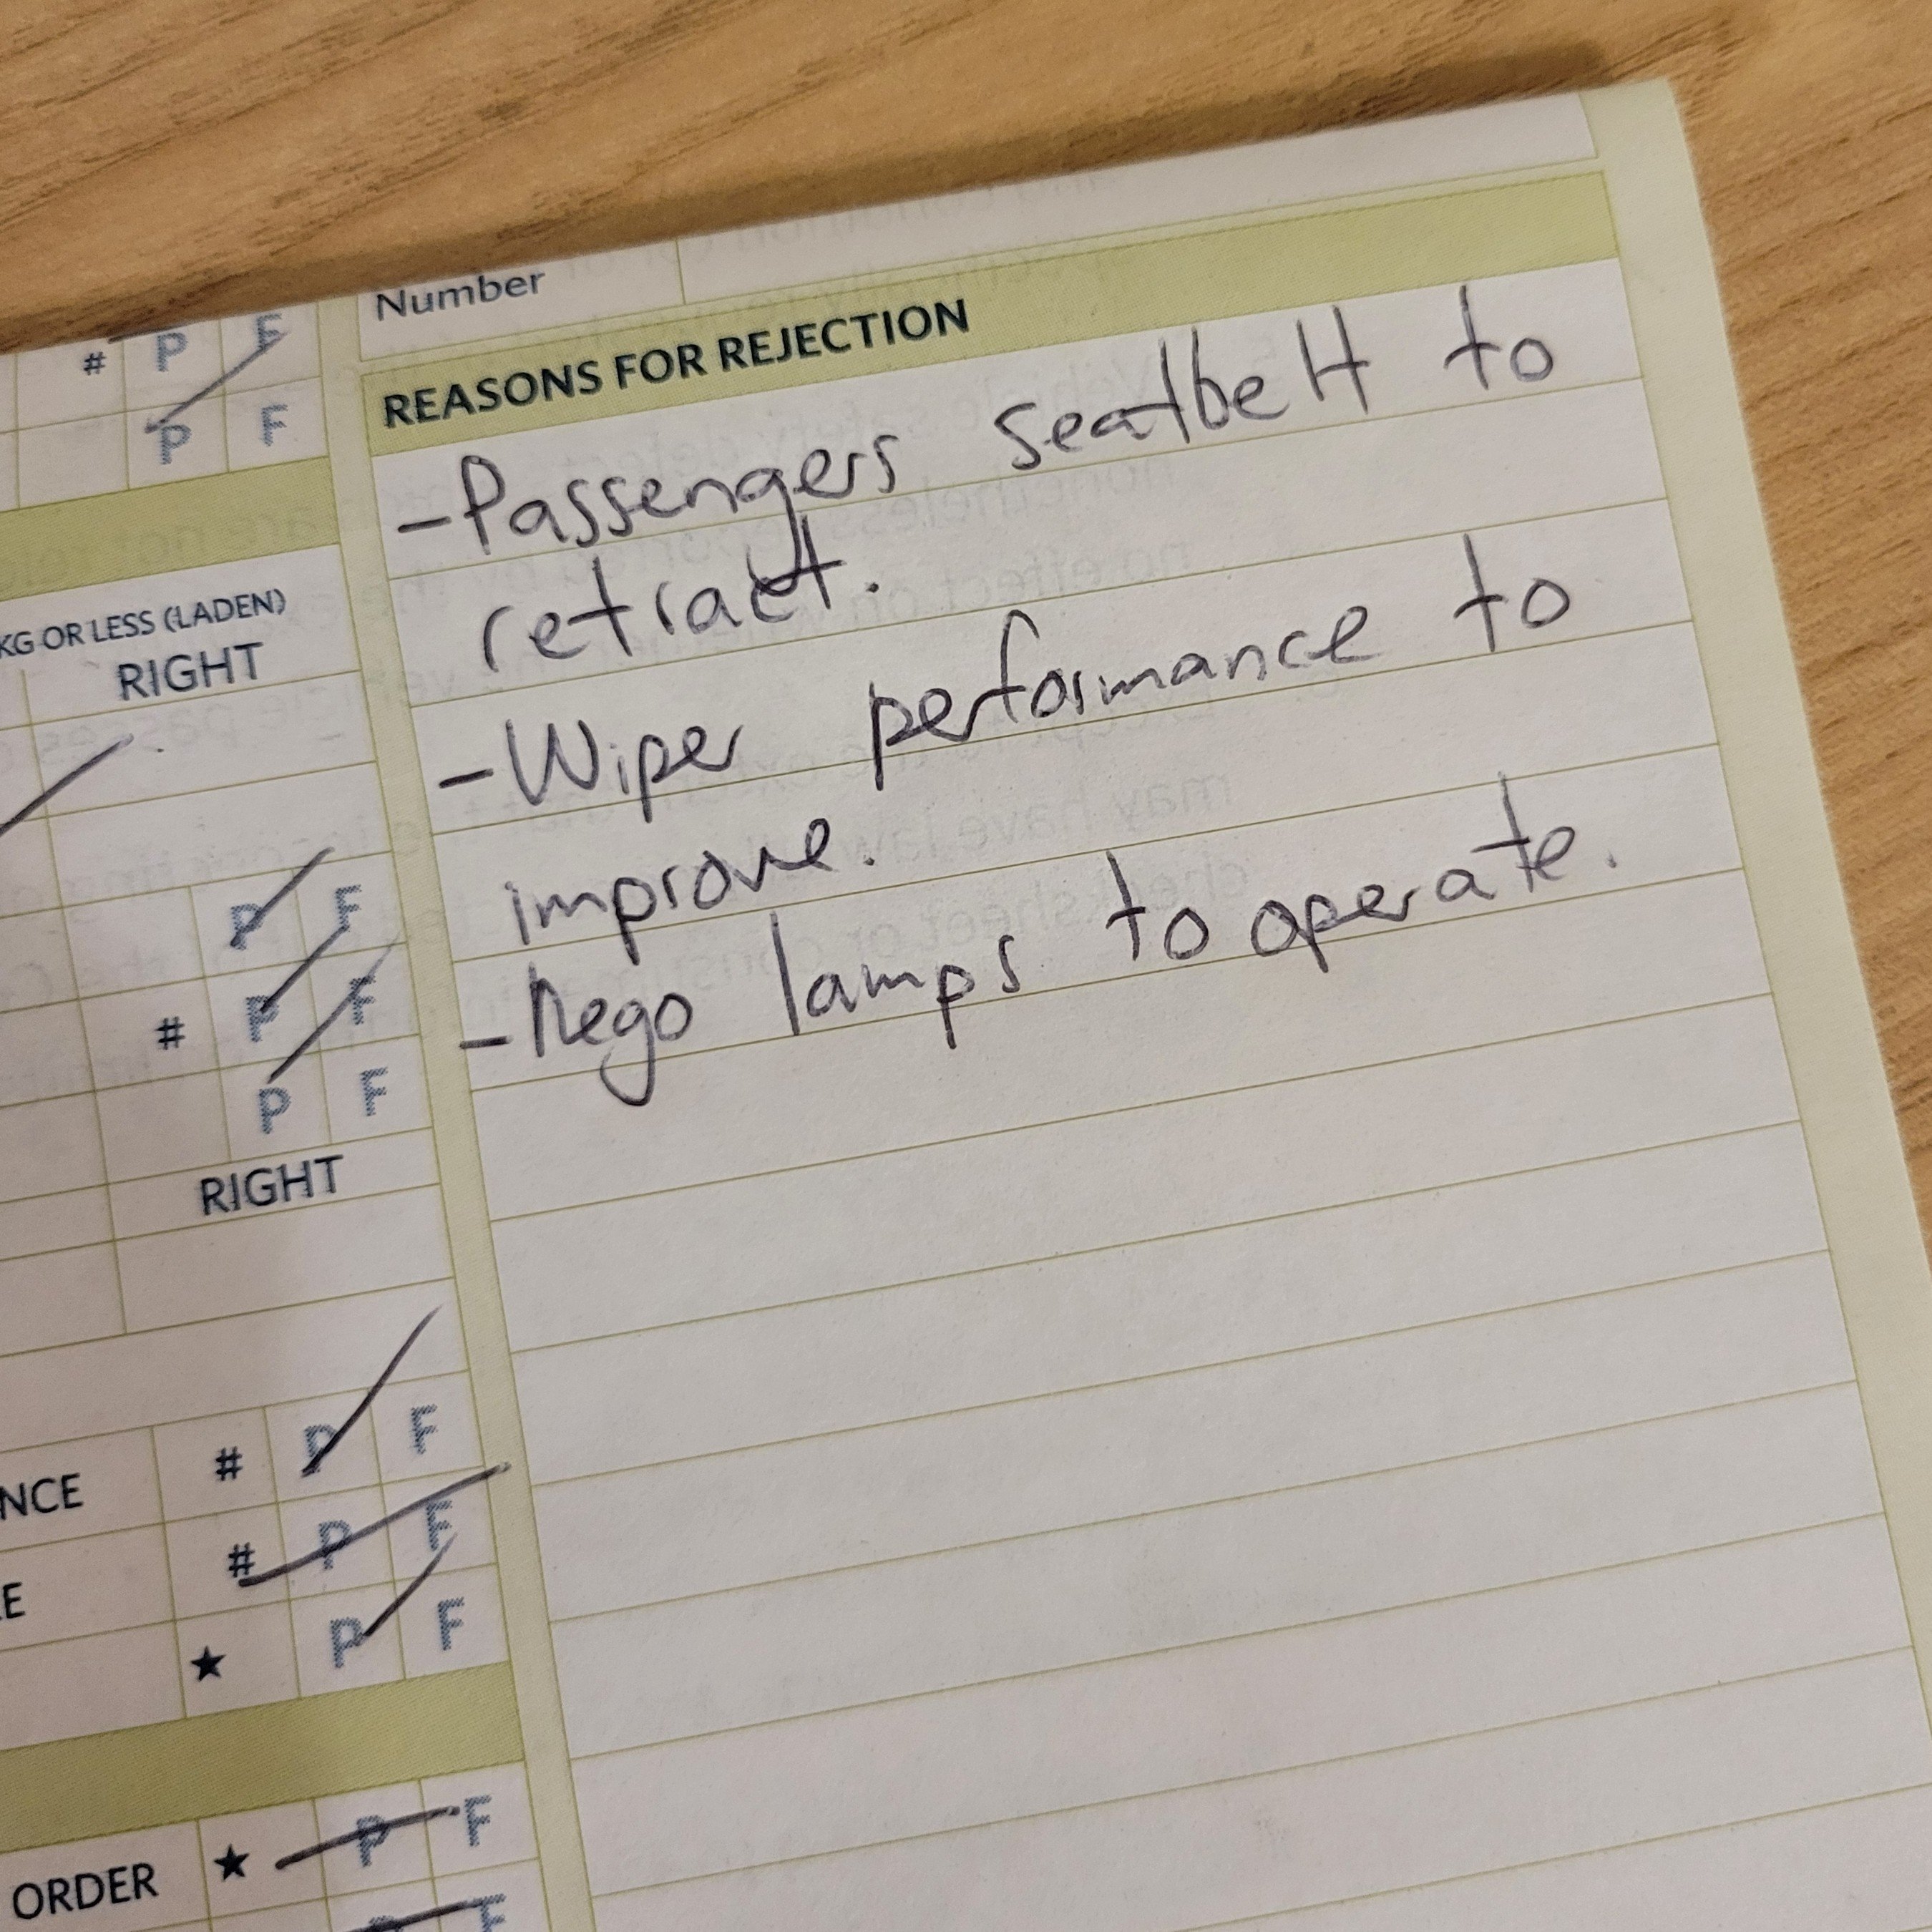 Number
REASONS FOR REJECTION
-Passengers seatbelt to
retract.
-Wiper performance to
improve.
-Rego lamps to operate.
# P F
P F
KG OR LESS (LADEN)
RIGHT
P F
# P F
P F
RIGHT
# P F
NCE
# P F
E
★ P F
ORDER ★ P F
P F